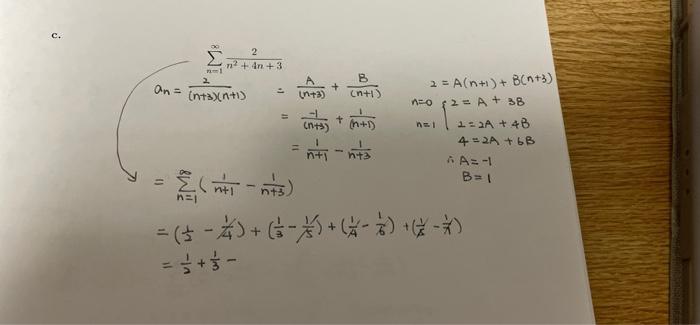 c.
∑_{n=1}^{∞} 2/(n² + 4n + 3)
an = 2/((n+3)(n+1)) = A/(n+3) + B/(n+1)
= -1/(n+3) + 1/(n+1)
= 1/(n+1) - 1/(n+3)
2 = A(n+1) + B(n+3)
n=0 { 2 = A + 3B
n=1 2 = 2A + 4B
4 = 2A + 6B
∴ A = -1
B = 1
= ∑_{n=1}^{∞} ( 1/(n+1) - 1/(n+3) )
= (1/2 - 1/4) + (1/3 - 1/5) + (1/4 - 1/6) + (1/5 - 1/7)
= 1/2 + 1/3 -